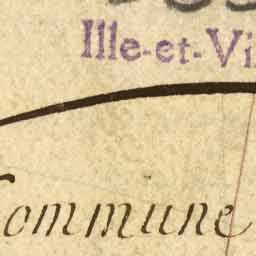 Ille-et-Vi
Commune